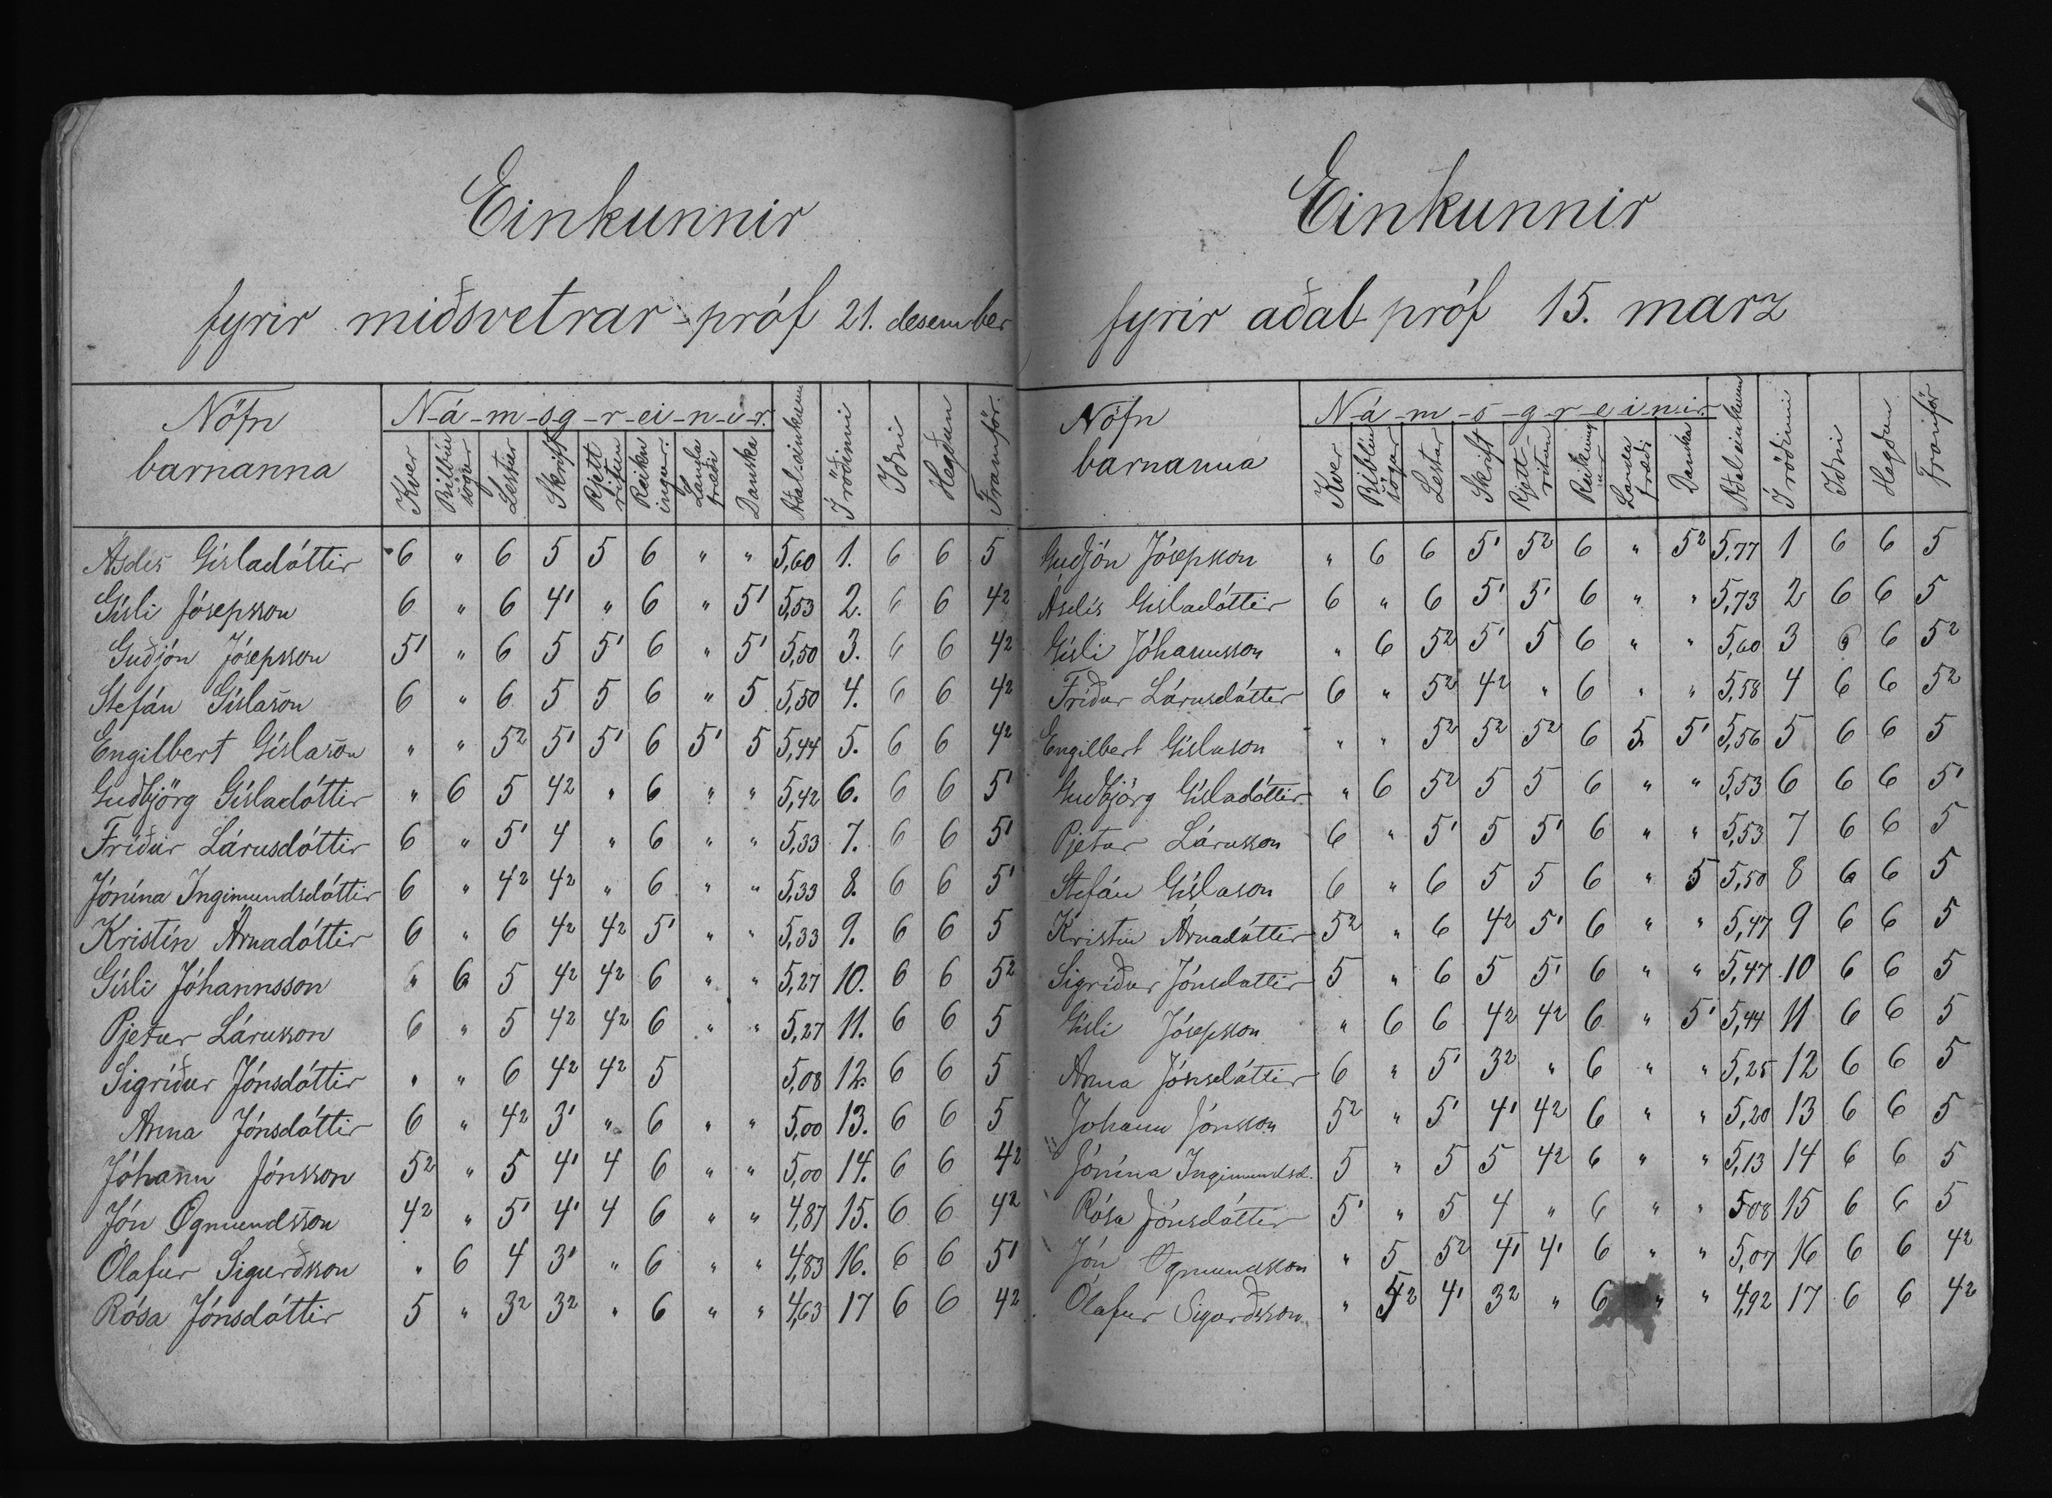 Einkunnir
fyrir miðsvetrar-próf 21. desember
Nöfn barnanna | Ná-m-sg-r-ei-n-i-r. | Aðal-einkunn | Í röðinni | Iðni | Hegðun | Framför.
Kver | Biblíu sögur | Lestur | Skrift | Rjett ritun | Reikn ingur. | Landa fræði | Danska
Ásdís Gísladóttir 6 " 6 5 5 6 " " 5,60 1. 6 6 5
Gísli Jósepsson 6 " 6 4¹ " 6 " 5¹ 5,53 2. 6 6 4²
Guðjón Jósepsson 5¹ " 6 5 5¹ 6 " 5¹ 5,50 3. 6 6 4²
Stefán Gíslason 6 " 6 5 5 6 " 5 5,50 4. 6 6 4²
Engilbert Gíslason " " 5² 5¹ 5¹ 6 5¹ 5 5,44 5. 6 6 4²
Guðbjörg Gísladóttir " 6 5 4² " 6 " " 5,42 6. 6 6 5¹
Fríður Lárusdóttir 6 " 5¹ 4 " 6 " " 5,33 7. 6 6 5¹
Jónína Ingimundsdóttir 6 " 4² 4² " 6 " " 5,33 8. 6 6 5¹
Kristín Árnadóttir 6 " 6 4² 4² 5¹ " " 5,33 9. 6 6 5
Gísli Jóhannsson " 6 5 4² 4² 6 " " 5,27 10. 6 6 5²
Pjetur Lárusson 6 " 5 4² 4² 6 " " 5,27 11. 6 6 5
Sigríður Jónsdóttir " " 6 4² 4² 5 5,08 12. 6 6 5
Anna Jónsdóttir 6 " 4² 3¹ " 6 " " 5,00 13. 6 6 5
Jóhann Jónsson 5² " 5 4¹ 4 6 " " 5,00 14. 6 6 4²
Jón Ögmundsson 4² " 5¹ 4¹ 4 6 " " 4,87 15. 6 6 4²
Ólafur Sigurðsson " 6 4 3¹ " 6 " " 4,83 16. 6 6 5¹
Rósa Jónsdóttir 5 " 3² 3² " 6 " " 4,63 17 6 6 4²
Einkunnir
fyrir aðal-próf 15. marz
Nöfn barnanna | Ná-m-s-g-r-e-i-n-i-r. | Aðaleinkunn | Í röðinni | Iðni | Hegðun | Framför
Kver | Biblíu sögur | Lestur | Skrift | Rjett-ritun | Reikning ur | Landa fræði | Danska
Guðjón Jósepsson " 6 6 5¹ 5² 6 " 5² 5,77 1 6 6 5
Ásdís Gísladóttir 6 " 6 5¹ 5¹ 6 " " 5,73 2 6 6 5
Gísli Jóhannsson " 6 5² 5¹ 5 6 " " 5,60 3 6 6 5²
Fríður Lárusdóttir 6 " 5² 4² " 6 " " 5,58 4 6 6 5²
Engilbert Gíslason " " 5² 5² 5² 6 5 5¹ 5,56 5 6 6 5
Guðbjörg Gísladóttir " 6 5² 5 5 6 " " 5,53 6 6 6 5¹
Pjetur Lárusson 6 " 5¹ 5 5¹ 6 " " 5,53 7 6 6 5
Stefán Gíslason 6 " 6 5 5 6 " 5 5,50 8 6 6 5
Kristín Árnadóttir 5² " 6 4² 5¹ 6 " " 5,47 9 6 6 5
Sigríður Jónsdóttir 5 " 6 5 5¹ 6 " " 5,47 10 6 6 5
Gísli Jósepsson " 6 6 4² 4² 6 " 5¹ 5,44 11 6 6 5
Anna Jónsdóttir 6 " 5¹ 3² " 6 " " 5,25 12 6 6 5
Johann Jónsson 5² " 5¹ 4¹ 4² 6 " " 5,20 13 6 6 5
Jónína Ingimundsd. 5 " 5 5 4² 6 " " 5,13 14 6 6 5
Rósa Jónsdóttir 5¹ " 5 4 " 6 " " 5 08 15 6 6 5
Jón Ögmundsson " 5 5² 4¹ 4¹ 6 " " 5,07 16 6 6 4²
Ólafur Sigurðsson " 5² 4¹ 3² " 6 " " 4,92 17 6 6 4²